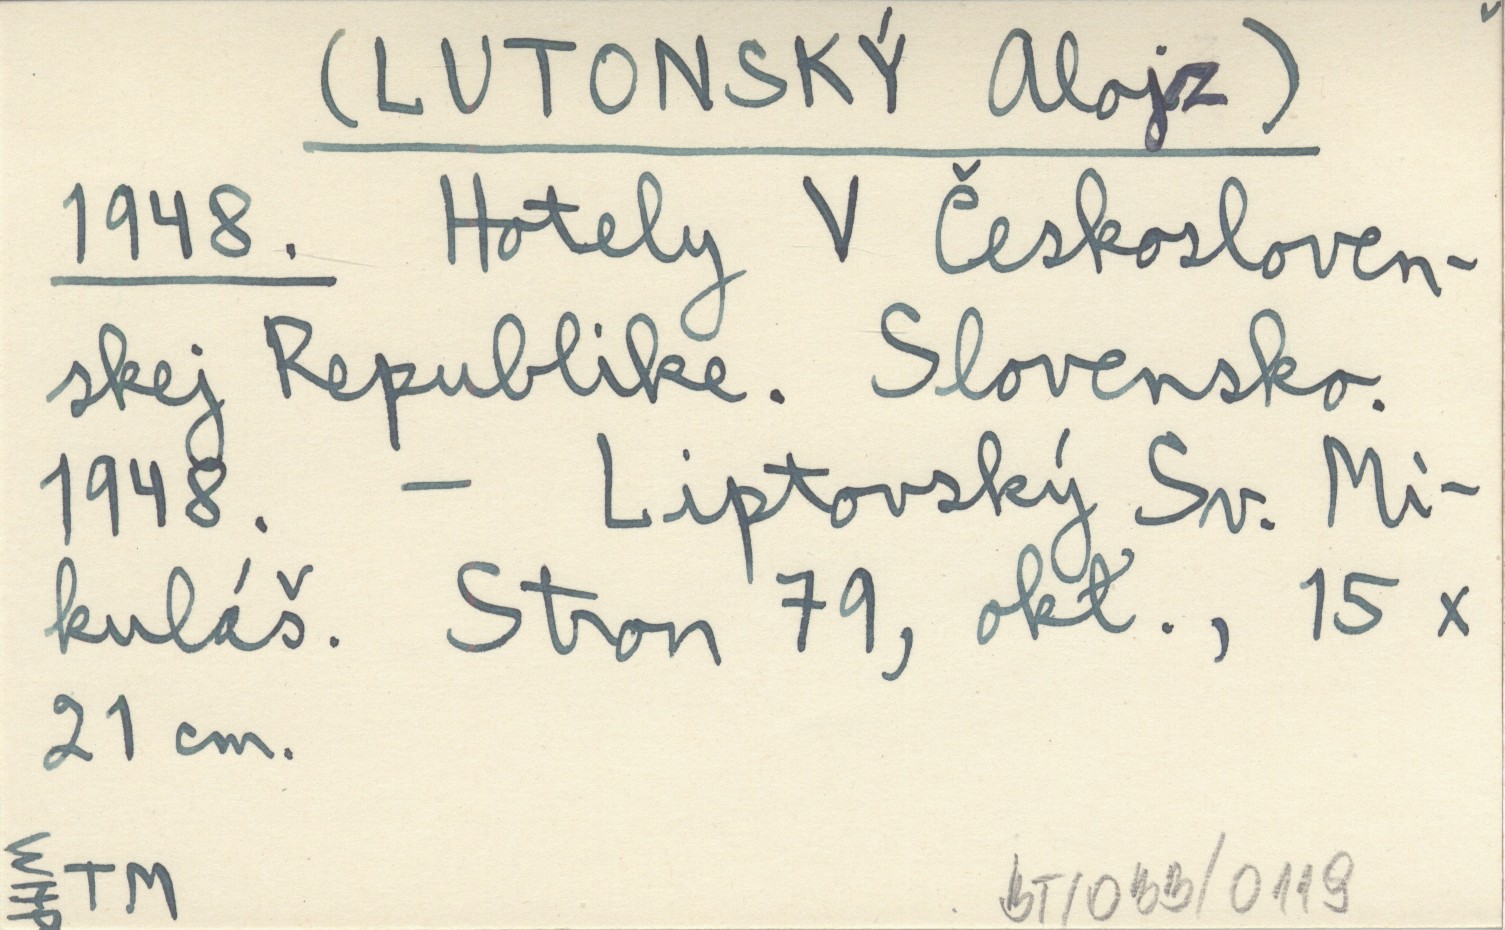 (LUTONSKÝ Alojz)
1948. Hotely V Českosloven-
skej Republike. Slovensko.
1948. — Liptovský Sv. Mi-
kuláš. Stron 79, okt., 15 x
21 cm.
WHP TM
BT/OBB/0119